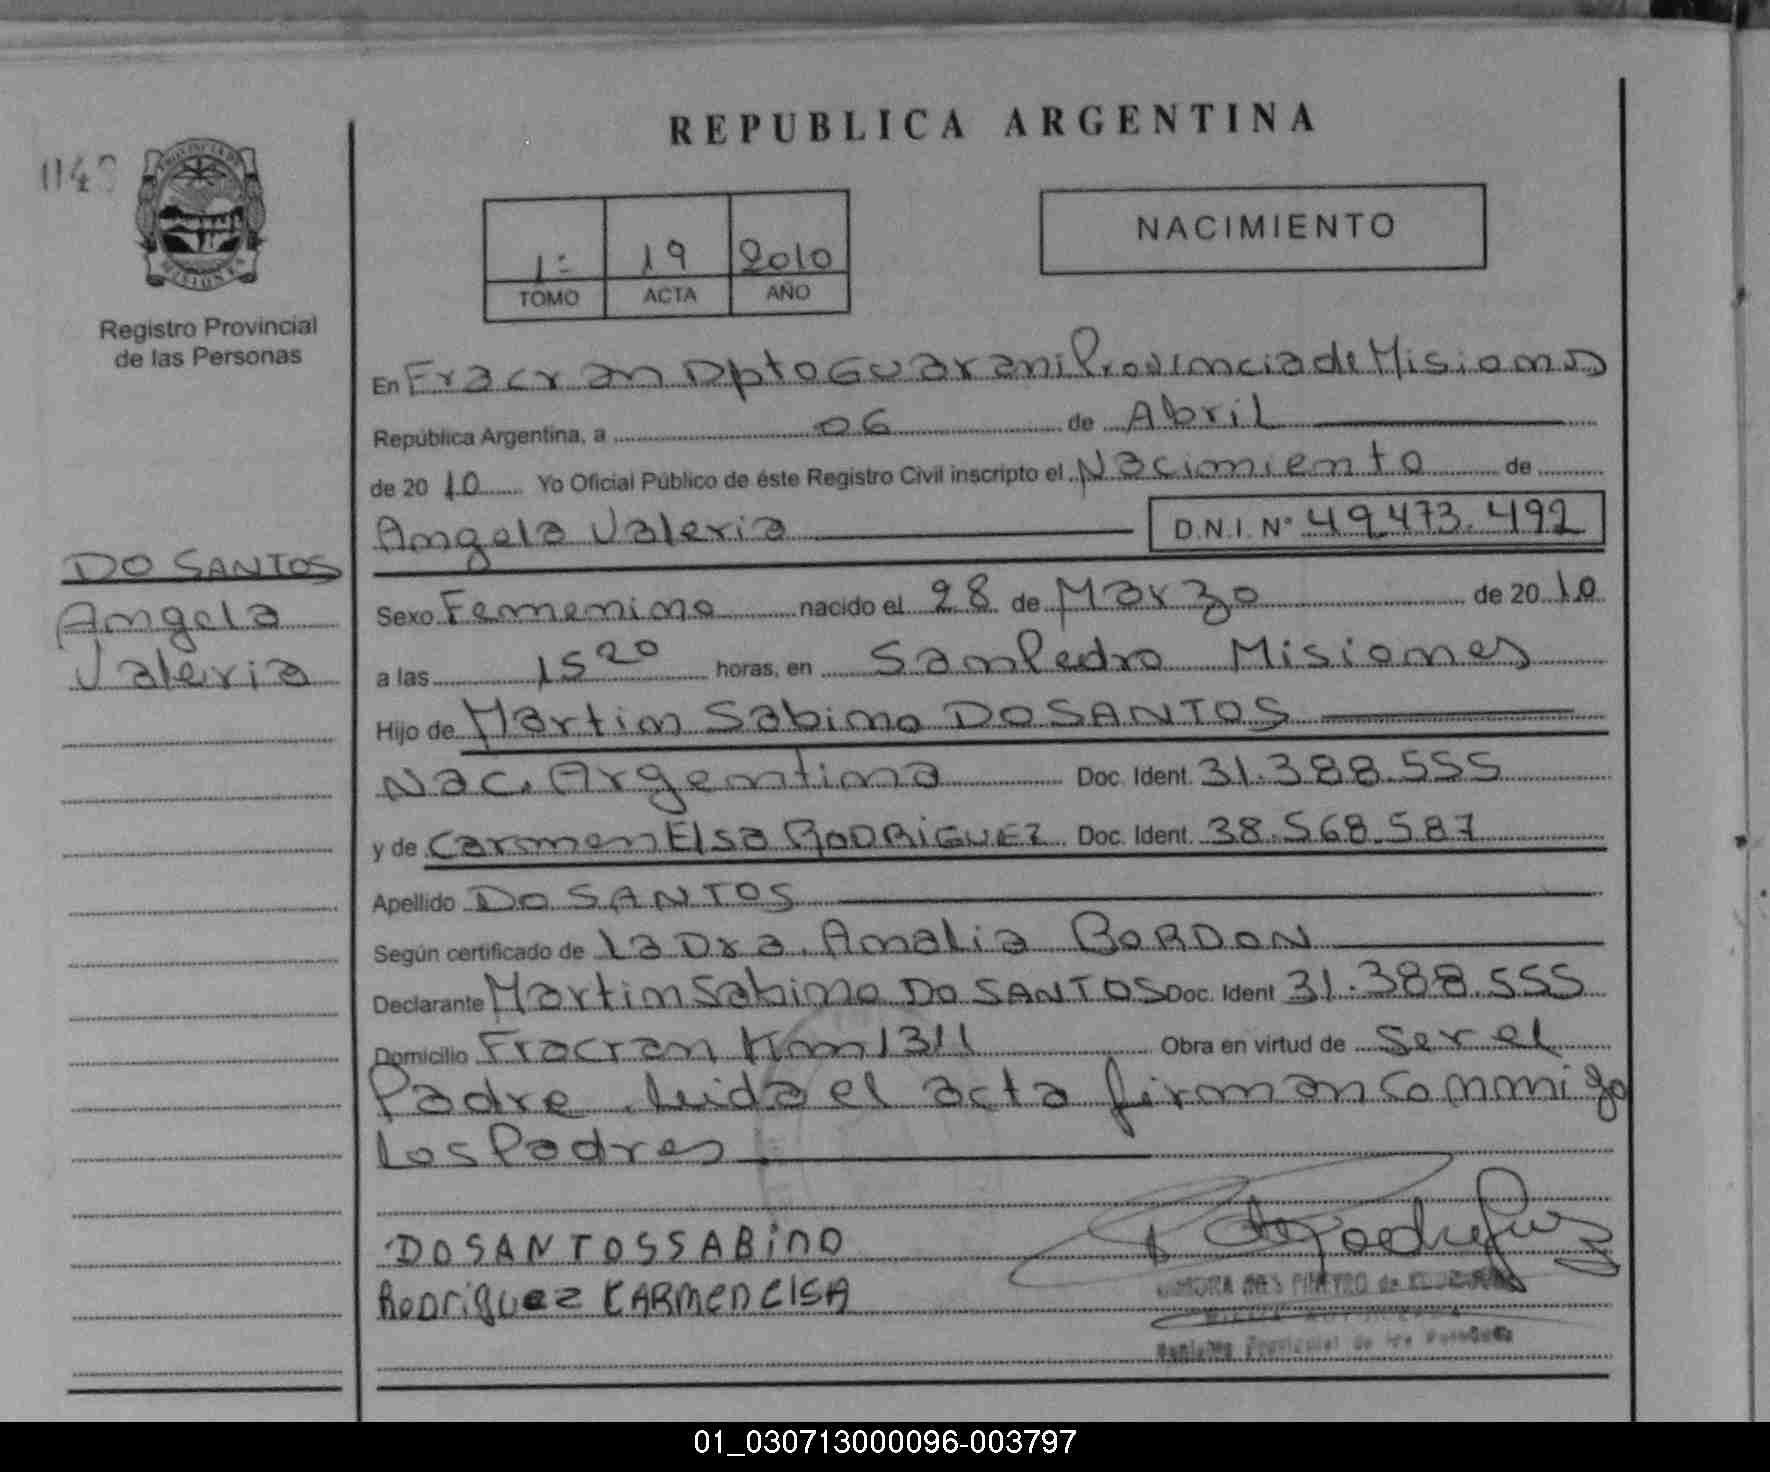 REPUBLICA ARGENTINA
PROVINCIA DE
MISIONES
Registro Provincial
de las Personas
1º 19 2010
TOMO ACTA AÑO
NACIMIENTO
En Fracran Dpto Guarani Provincia de Misiones
República Argentina, a 06 de Abril
de 2010 Yo Oficial Público de éste Registro Civil inscripto el Nacimiento de
Angela Valeria D.N.I. Nº 49.473.492
DO SANTOS
Angela
Valeria
Sexo Femenino nacido el 28 de Marzo de 2010
a las 15 20 horas, en San Pedro Misiones
Hijo de Martin Sabino DO SANTOS
Nac. Argentina Doc. Ident. 31.388.555
y de Carmen Elsa RODRIGUEZ Doc. Ident. 38.568.587
Apellido DO SANTOS
Según certificado de la Dra. Amalia BORDON
Declarante Martin Sabino DO SANTOS Doc. Ident 31.388.555
Domicilio Fracran Km 1311 Obra en virtud de ser el
Padre. Leida el acta firman conmigo
Los Padres
DO SANTOS SABiNO
RODRIGUEZ CARMEN ELSA
Registro Provincial de las Personas
01_030713000096-003797